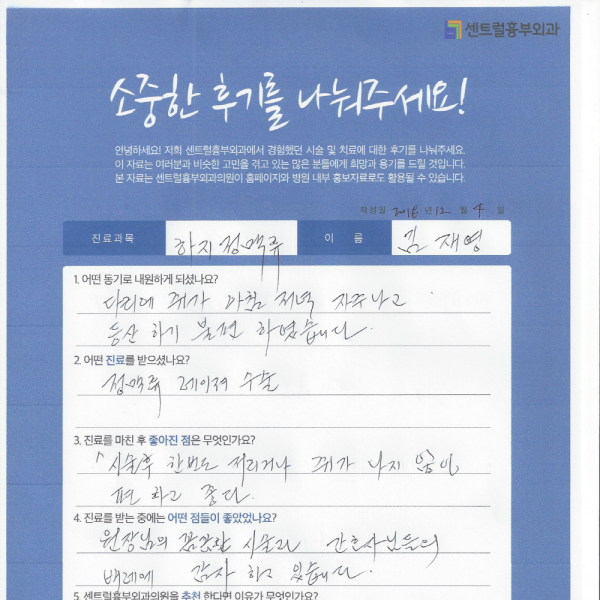 센트럴흉부외과
소중한 후기를 나눠주세요!
안녕하세요! 저희 센트럴흉부외과에서 경험했던 시술 및 치료에 대한 후기를 나눠주세요.
이 자료는 여러분과 비슷한 고민을 겪고 있는 많은 분들에게 희망과 용기를 드릴 것입니다.
본 자료는 센트럴흉부외과의원이 홈페이지와 병원 내부 홍보자료로도 활용될 수 있습니다.
작성일 2016 년 12 월 4 일
진료과목 하지정맥류 이 름 김재영
1. 어떤 동기로 내원하게 되셨나요?
다리에 쥐가 아침 저녁 자주나고
등산 하기 불편 하였습니다.
2. 어떤 진료를 받으셨나요?
정맥류 레이져 수술
3. 진료를 마친 후 좋아진 점은 무엇인가요?
시술후 한번도 저리거나 쥐가 나지 않아
편하고 좋다.
4. 진료를 받는 중에는 어떤 점들이 좋았었나요?
원장님의 꼼꼼한 시술과 간호사님들의
배려에 감사 하고 있습니다.
5. 센트럴흉부외과의원을 추천 한다면 이유가 무엇인가요?